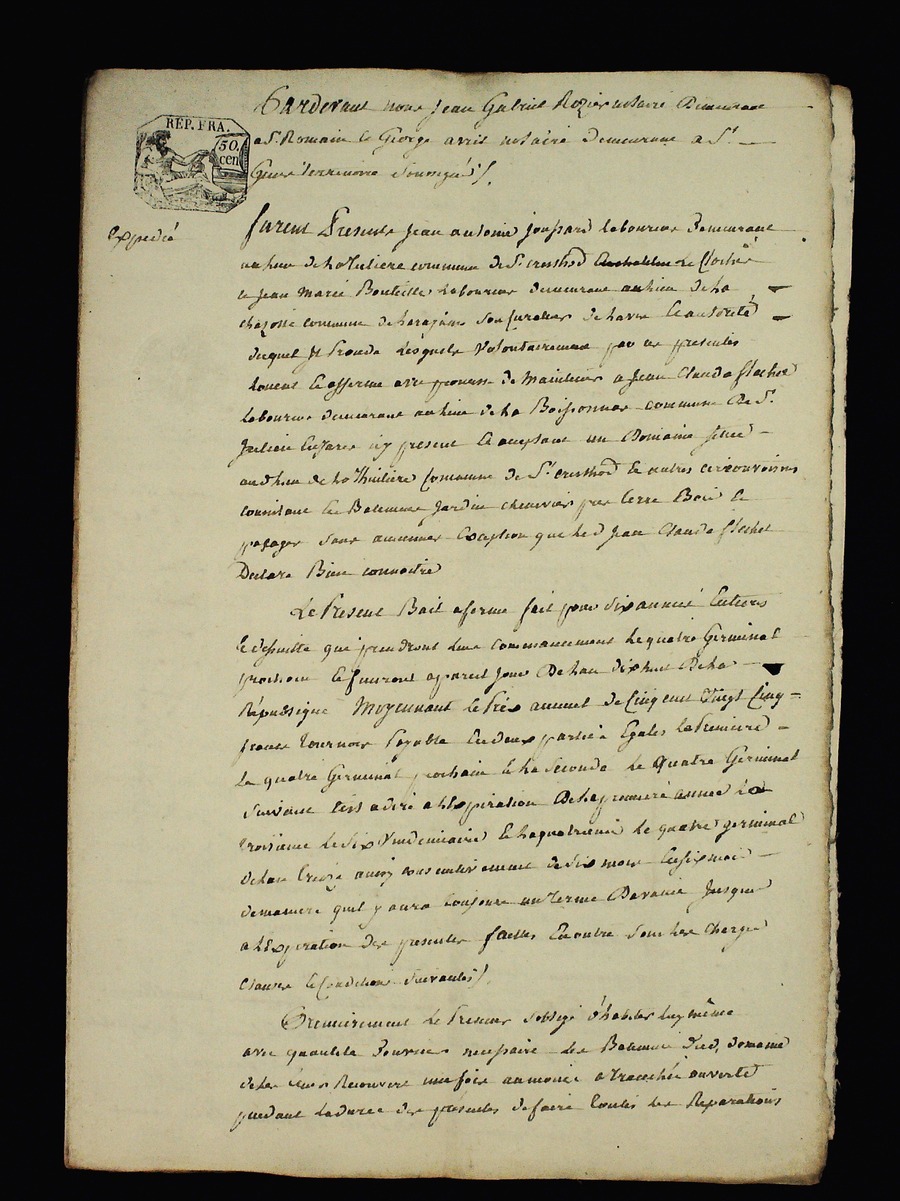 Pardevant nous Jean Gabriel Rozier notaire Demeurant
a St. Romain le George avril notaire demeurant a St.
Genes Terrenoire Soussigné
REP. FRA.
50.
cen
Expedié
furent Presents Jean antoine joussard laboureur demeurant
au lieu de la tuliere commune de St. cristhod
et Jean Marie Bouteille laboureur demeurant au lieu de la
commune de son Curateur de lavis et autorité
duquel il Procede lesquels Volontairement par ces presentes
louent et afferme avec promesse de Maintenir a Jean Claude flechet
laboureur demeurant au lieu de la Boissonnas commune de St.
Julien icy present et acceptant un Domaine situé
aud. lieu de la thuiliere Commune de St. cristhod et autres circonvoisins
consistant en Batiments Jardin chenevier pré terre Bois et
pasages sans aucunne Exception que led Jean Claude flechet
Declare Bien connoitre
Le Present Bail a ferme fait pour six années Entieres
et de suitte qui prendront leur commancement le quatre Germinal
prochain et finiront a pareil jour De lan dix huit De la
République Moyennant le Prix annuel de Cinq cent Vingt Cinq
francs tournois Payable En deux parties Egales la Premiere
le quatre Germinal prochain et la Seconde le Quatre Germinal
Suivant c'est a dire a l'Expiration De la premiere année la
troisieme le six Vendemiaire et la quatrieme le quatre germinal
de lan treize ainsy consecutivement de six mois En six mois
de maniere quil y aura toujours un terme D'avance Jusqua
a l'Expiration des presentes faittes En outre sous les Charges
Clauses et Conditions Suivantes
Premierement le Preneur s'oblige d'habiter luy même
avec quantité d'ouvriers necessaire les Batiments Dud. domaine
de les Recouvrir une fois au moins a tranchée ouverte
pendant la durée des présentes de faire toutes les Réparations